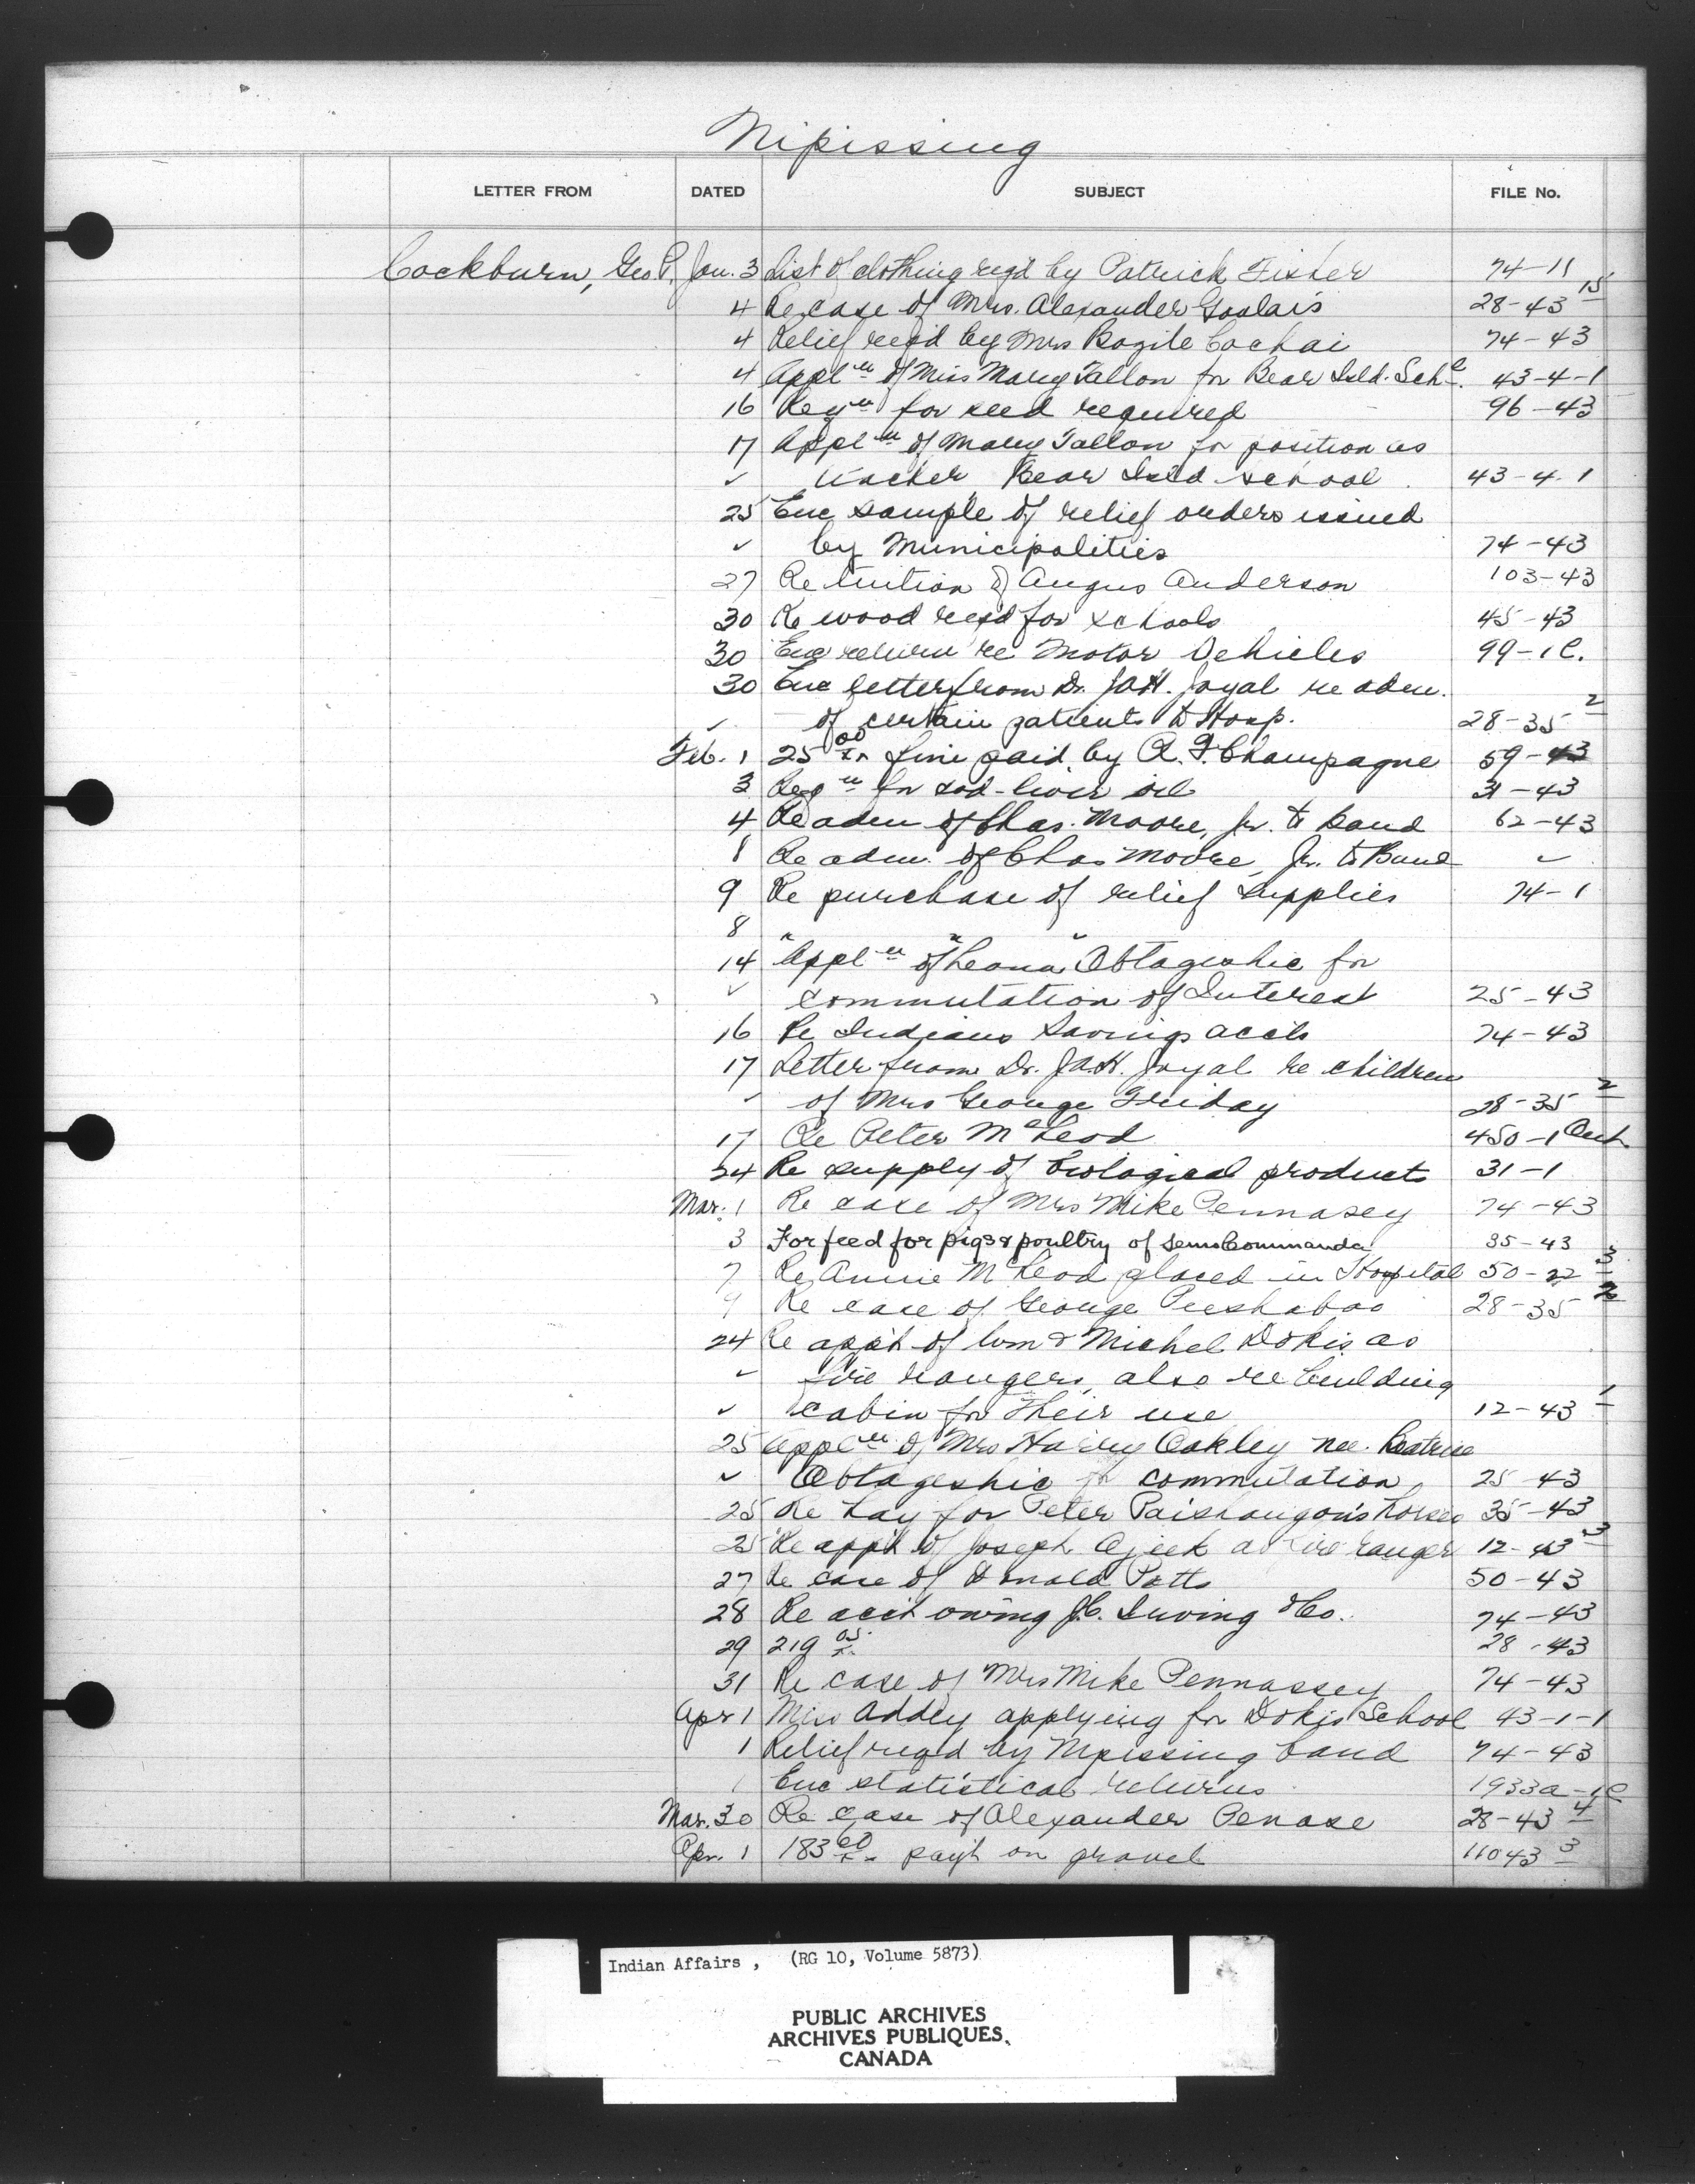 Nipissing
LETTER FROM DATED SUBJECT FILE No.
Cockburn, Geo P. Jan. 3 List of clothing reqd by Patrick Fisher 74-11
4 Re case of Mrs. Alexander Goulais 28-43 15
4 Relief reqd by Mrs Bazile Cochai 74-43
4 Applⁿ of Miss Mary Fallon for Bear Isld. Schl. 43-4-1
16 Reqⁿ for seed required 96-43
17 Applⁿ of Mary Fallon for position as
✓ teacher Bear Isld school 43-4-1
25 Enc sample of relief orders issued
✓ by Municipalities 74-43
27 Re tuition of Angus Anderson 103-43
30 Re wood reqd for schools 45-43
30 Enc return re Motor Vehicles 99-1C.
30 Enc letter from Dr. J.A.H. Joyal re adm.
✓ of certain patients to Hosp. 28-35 2
Feb. 1 25.00 fine paid by A. F. Champagne 59-43
3 Reqⁿ for cod-liver oil 31-43
4 Re adm of Chas. Moore, Jr. to Band 62-43
8 Re adm. of Chas Moore, Jr. to Band ✓
9 Re purchase of relief supplies 74-1
8 " " "
14 Applⁿ of Leona Obtageshic for
✓ commutation of Interest 25-43
16 Re Indians Savings accts 74-43
17 Letter from Dr. J.A.H. Joyal re children
" of Mrs George Friday 28-35 2
17 Re Peter McLeod 450-1 Ont
24 Re supply of biological products 31-1
Mar. 1 Re case of Mrs Mike Pennasey 74-43
3 For feed for pigs & poultry of Commanda 35-43
7 Re Annie McLeod placed in Hospital 50-22 3
9 Re case of George Peeshaboo 28-35 2
24 Re app't of Wm & Michel Dokis as
✓ fire rangers, also re building
✓ cabin for their use 12-43 1
25 Applⁿ of Mrs Harry Oakley nee. Beatrice
✓ Obtageshic for commutation 25-43
25 Re hay for Peter Paishangon's horses 35-43
25 Re app't of Joseph Ajeek as fire ranger 12-43 3
27 Re case of Donald Potts 50-43
28 Re acct owing J.C. Irving & Co. 74-43
29 219.05 28-43
31 Re case of Mrs Mike Pennassey 74-43
Apr 1 Miss Addey applying for Dokis School 43-1-1
1 Relief reqd by Nipissing band 74-43
1 Enc statistical returns 1933a-1C
Mar. 30 Re case of Alexander Penase 28-43 4
Apr. 1 183.60 pay't on gravel 11043 3
Indian Affairs, (RG 10, Volume 5873)
PUBLIC ARCHIVES
ARCHIVES PUBLIQUES
CANADA